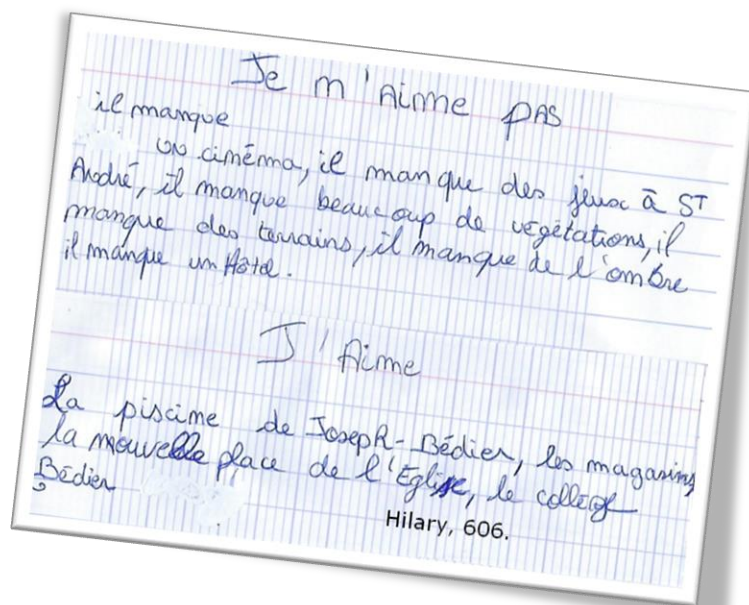 Je m'Aime PAS
il manque
un cinéma, il manque des jeux à ST
André, il manque beaucoup de végétations, il
manque des terrains, il manque de l'ombre
il manque un Hôtel.
J'Aime
La piscine de Joseph-Bédier, les magasins
la nouvelle place de l'Eglise, le collège
Bédier
Hilary, 606.